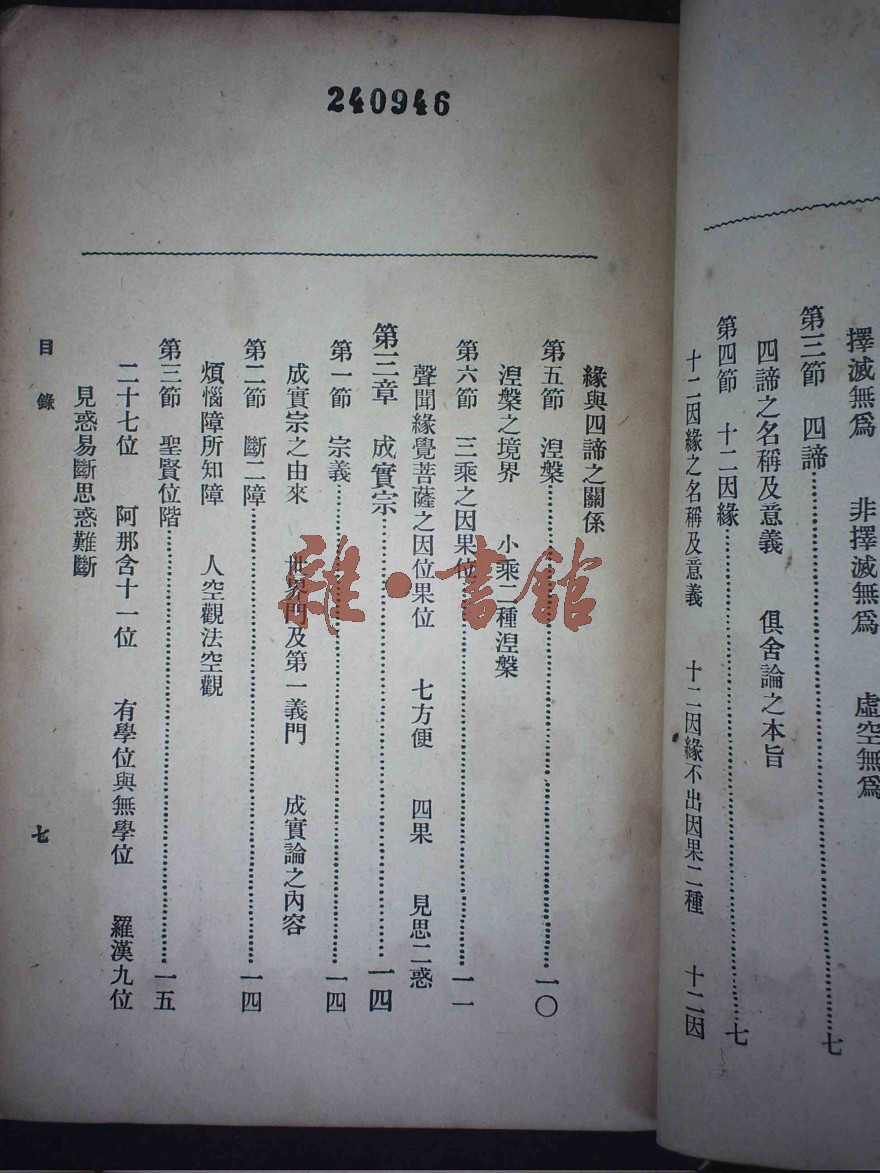 擇滅無爲　非擇滅無爲　虛空無爲
第三節　四諦……七
四諦之名稱及意義　俱舍論之本旨
第四節　十二因緣……七
十二因緣之名稱及意義　十二因緣不出因果二種　十二因
240946
緣與四諦之關係
第五節　涅槃……一〇
涅槃之境界　小乘二種涅槃
第六節　三乘之因果位……一一
聲聞緣覺菩薩之因位果位　七方便　四果　見思二惑
第三章　成實宗……一四
第一節　宗義……一四
成實宗之由來　世界門及第一義門　成實論之內容
第二節　斷二障……一四
煩惱障所知障　人空觀法空觀
第三節　聖賢位階……一五
二十七位　阿那含十一位　有學位與無學位　羅漢九位
見惑易斷思惑難斷
目錄
七
雜·書館